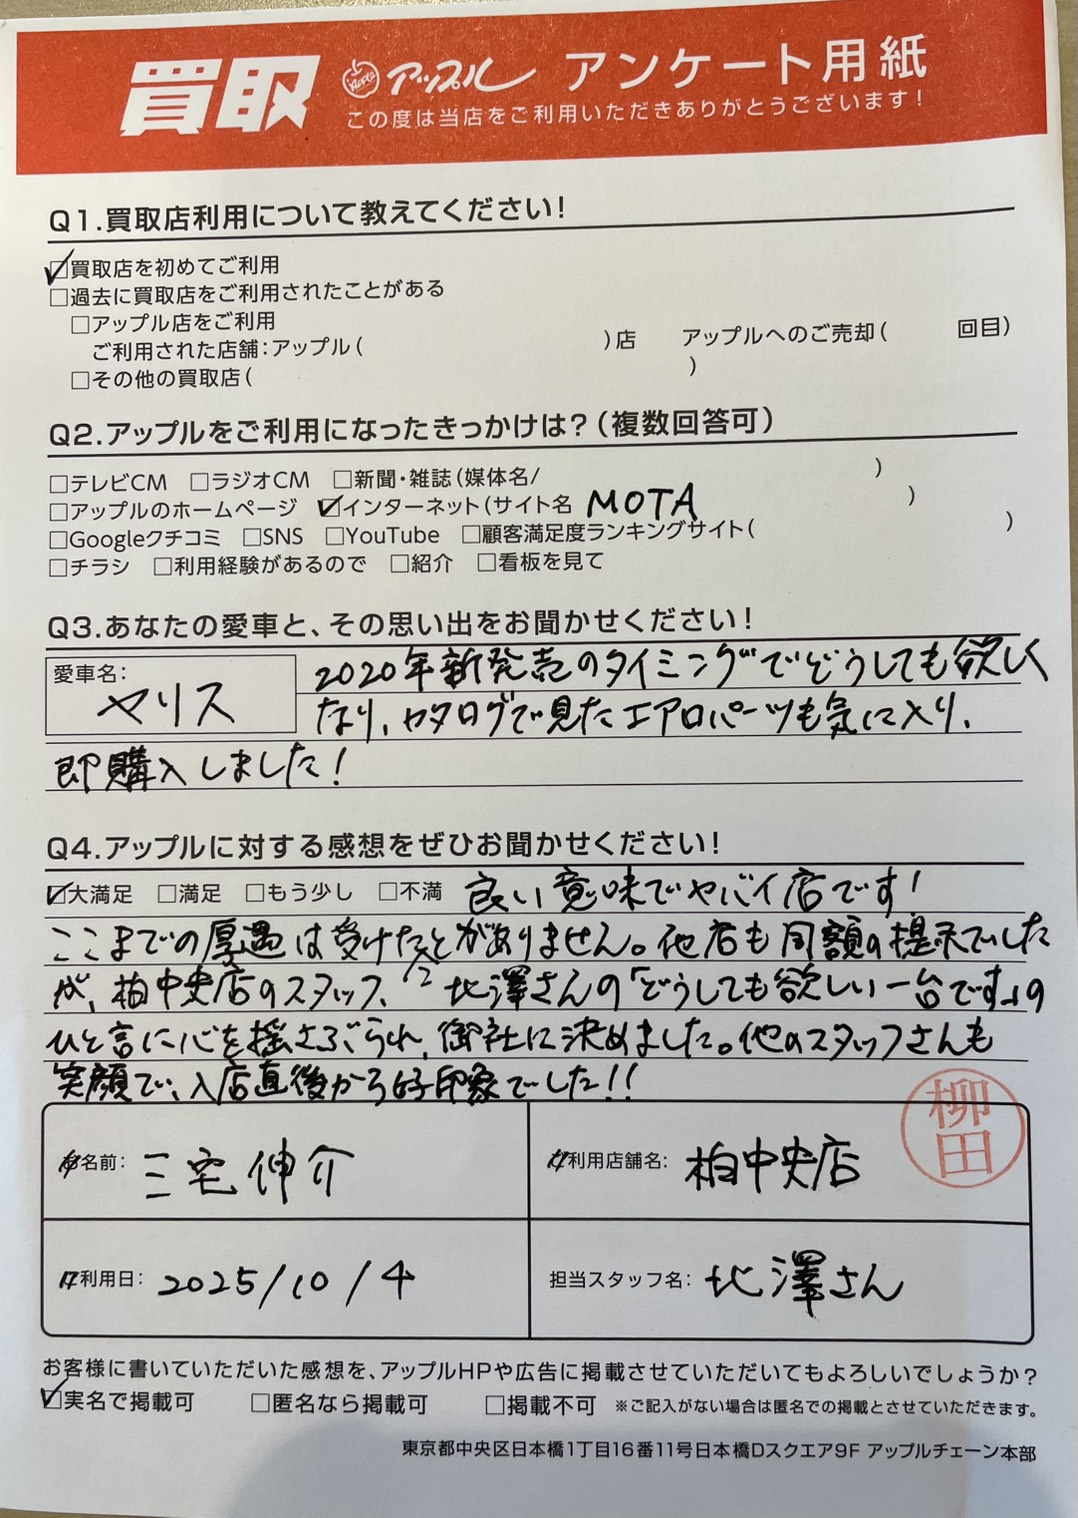 買取 Apple アップル アンケート用紙
この度は当店をご利用いただきありがとうございます!
Q1.買取店利用について教えてください!
☑買取店を初めてご利用
□過去に買取店をご利用されたことがある
□アップル店をご利用
ご利用された店舗:アップル( )店 アップルへのご売却( 回目)
□その他の買取店( )
Q2.アップルをご利用になったきっかけは?(複数回答可)
□テレビCM □ラジオCM □新聞・雑誌(媒体名/ )
□アップルのホームページ ☑インターネット(サイト名 MOTA )
□Googleクチコミ □SNS □YouTube □顧客満足度ランキングサイト( )
□チラシ □利用経験があるので □紹介 □看板を見て
Q3.あなたの愛車と、その思い出をお聞かせください!
愛車名: ヤリス
2020年新発売のタイミングでどうしても欲しく
なり、カタログで見たエアロパーツも気に入り、
即購入しました!
Q4.アップルに対する感想をぜひお聞かせください!
☑大満足 □満足 □もう少し □不満 良い意味でヤバイ店です!
ここまでの厚遇は受けたことがありません。他店も同額の提示でした
が、柏中央店のスタッフ、北澤さんの「どうしても欲しい一台です」の
ひと言に心を揺さぶられ、御社に決めました。他のスタッフさんも
笑顔で、入店直後から好印象でした!!
名前: 三宅伸介
利用店舗名: 柏中央店
柳田
利用日: 2025/10/4
担当スタッフ名: 北澤さん
お客様に書いていただいた感想を、アップルHPや広告に掲載させていただいてもよろしいでしょうか?
☑実名で掲載可 □匿名なら掲載可 □掲載不可 ※ご記入がない場合は匿名での掲載とさせていただきます。
東京都中央区日本橋1丁目16番11号日本橋Dスクエア9F アップルチェーン本部